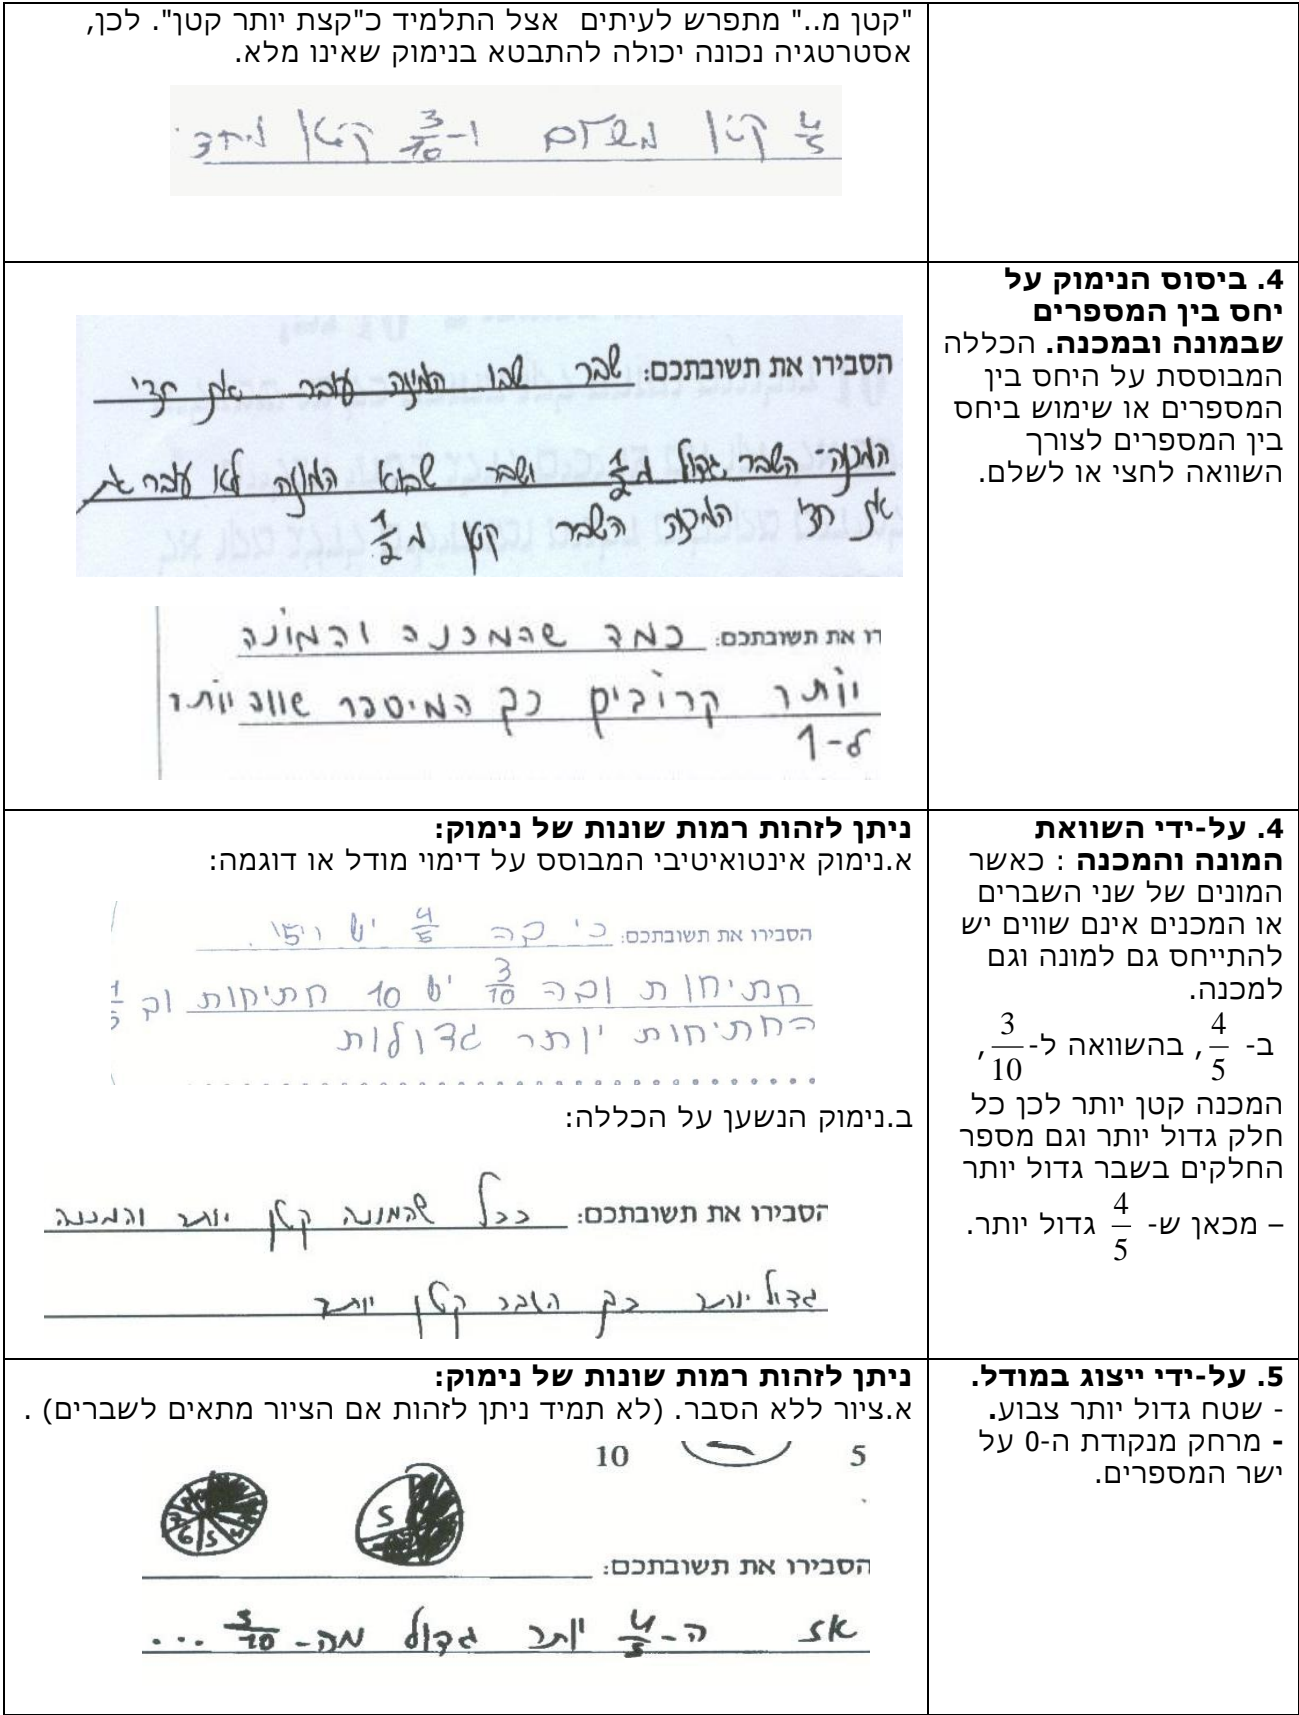 "קטן מ.." מתפרש לעיתים אצל התלמיד כ"קצת יותר קטן". לכן,
אסטרטגיה נכונה יכולה להתבטא בנימוק שאינו מלא.
4/5 קטן משלם ו-3/10 קטן מחצי
4. ביסוס הנימוק על
יחס בין המספרים
שבמונה ובמכנה. הכללה
המבוססת על היחס בין
המספרים או שימוש ביחס
בין המספרים לצורך
השוואה לחצי או לשלם.
הסבירו את תשובתכם: שבר שבו המונה עובר את חצי
המכנה- השבר גדול מ 1/2 ושבר שבוא המונה לא עובר את
את חצי המכנה השבר קטן מ 1/2
רו את תשובתכם: כמה שהמכנה והמונה
יותר קרובים כך המיספר שווה יותר
ל-1
4. על-ידי השוואת
המונה והמכנה : כאשר
המונים של שני השברים
או המכנים אינם שווים יש
להתייחס גם למונה וגם
למכנה.
ב- 4/5, בהשוואה ל-3/10,
המכנה קטן יותר לכן כל
חלק גדול יותר וגם מספר
החלקים בשבר גדול יותר
– מכאן ש- 4/5 גדול יותר.
ניתן לזהות רמות שונות של נימוק:
א.נימוק אינטואיטיבי המבוסס על דימוי מודל או דוגמה:
הסבירו את תשובתכם: כי בה 4/5 יש
חתיחות ובה 3/10 יש 10 חתיחות וב 1/5
החתיחות יותר גדולות
ב.נימוק הנשען על הכללה:
הסבירו את תשובתכם: ככל שהמונה קטן יותר והמכנה
גדול יותר כך השבר קטן יותר
5. על-ידי ייצוג במודל.
- שטח גדול יותר צבוע.
- מרחק מנקודת ה-0 על
ישר המספרים.
ניתן לזהות רמות שונות של נימוק:
א.ציור ללא הסבר. (לא תמיד ניתן לזהות אם הציור מתאים לשברים) .
10 5
5
6 5
הסבירו את תשובתכם:
אז ה-4/5 יותר גדול מה-3/10 ...